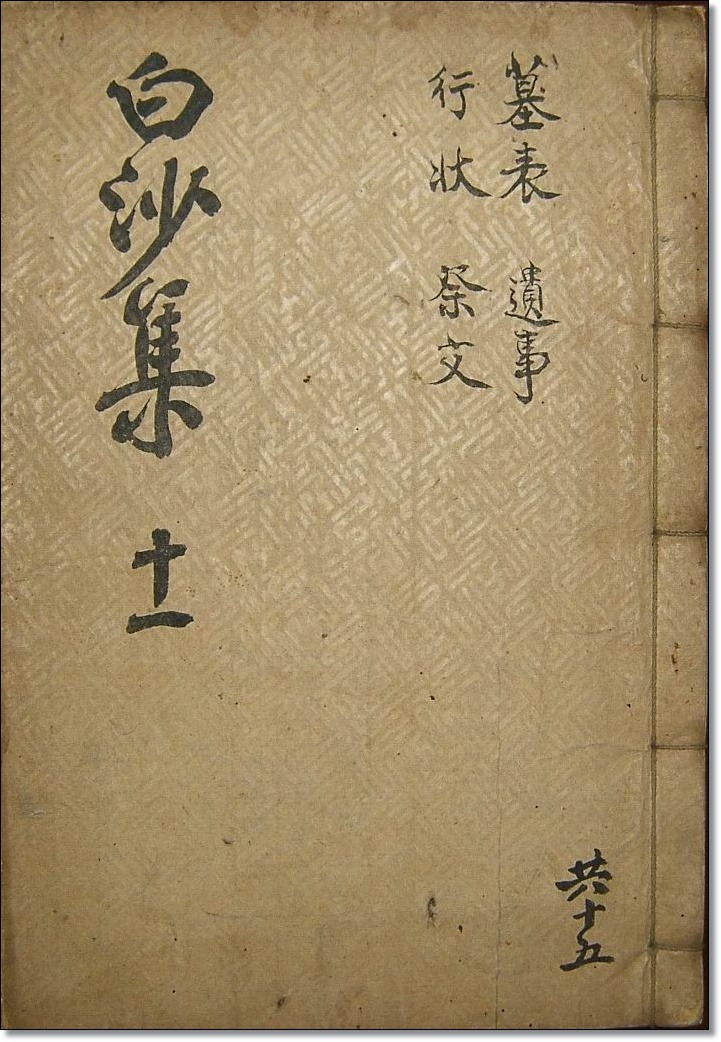 墓表 遺事
行狀 祭文
白沙集 十一
共十五